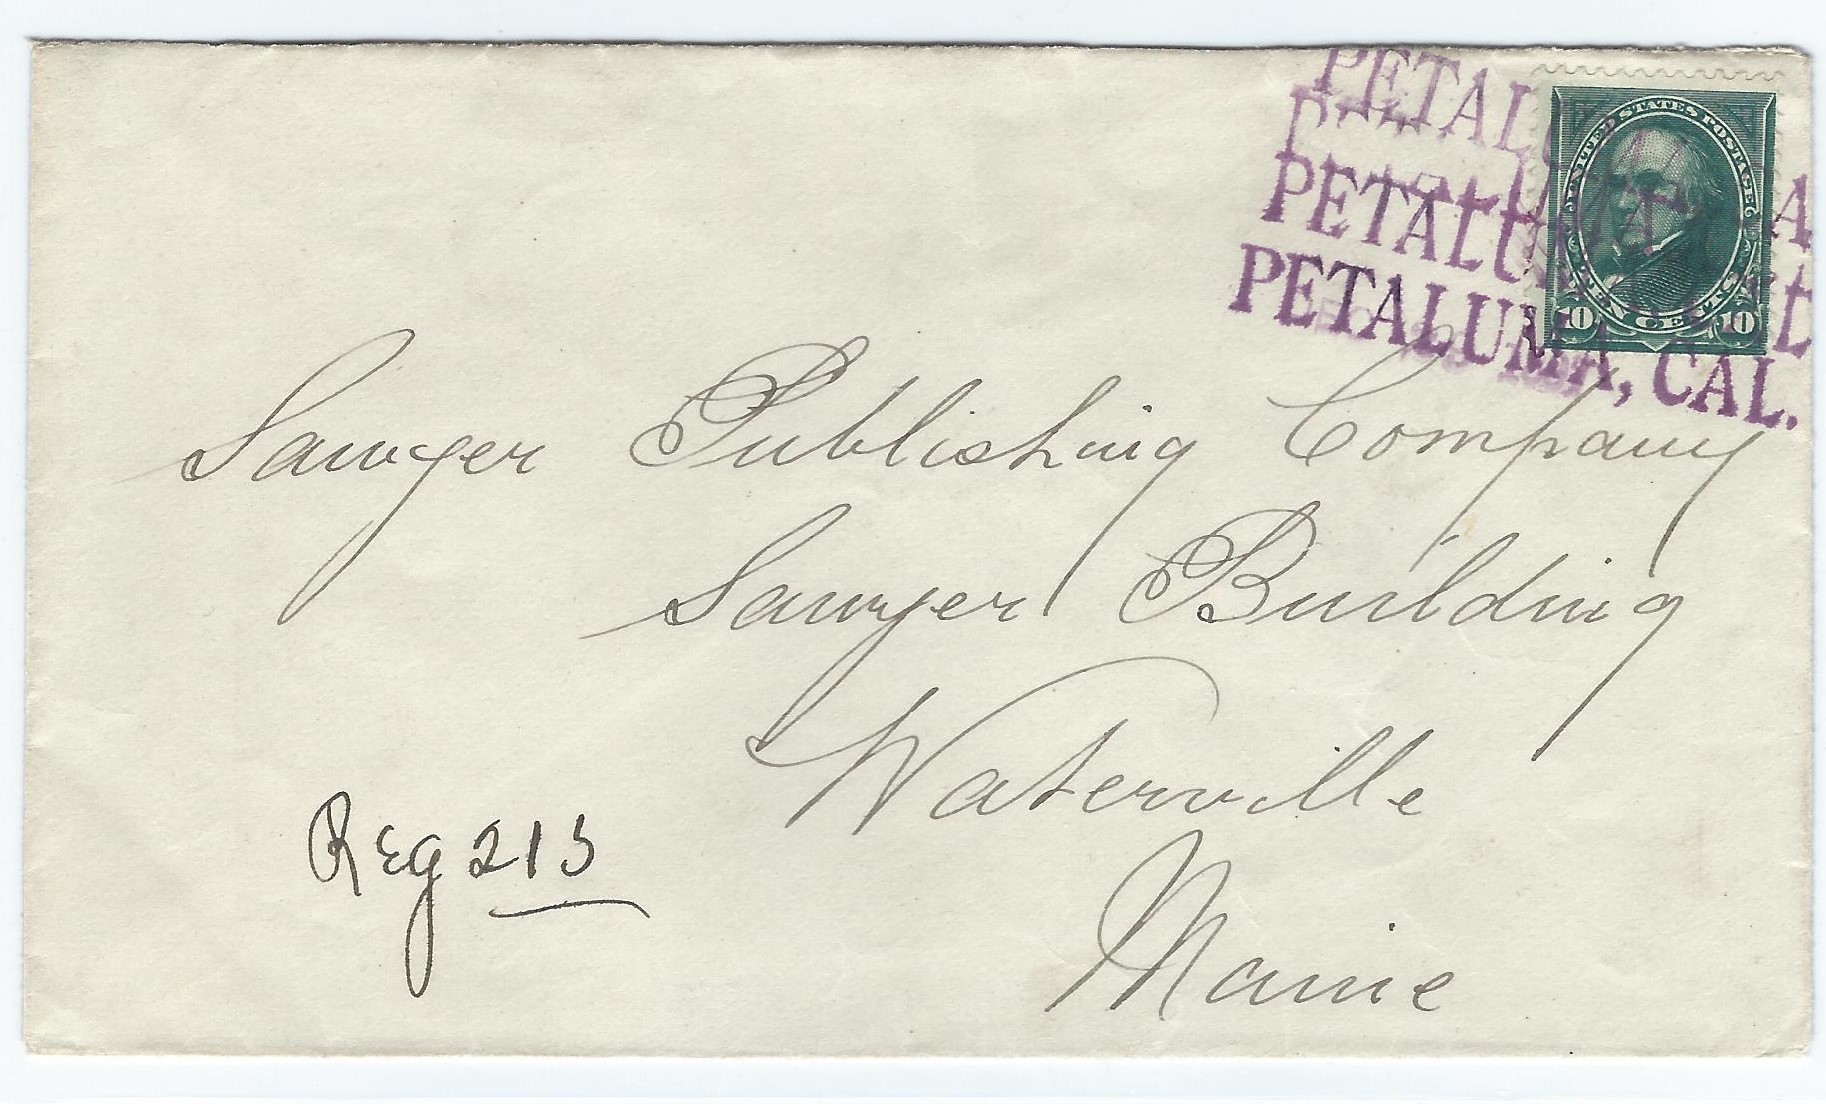 PETALU
PETALUMA
PETALUMA, CAL
PETALUMA, CAL.
UNITED STATES POSTAGE
TEN CENTS
10 10
Sawyer Publishing Company
Sawyer Building
Waterville
Maine
Reg 213